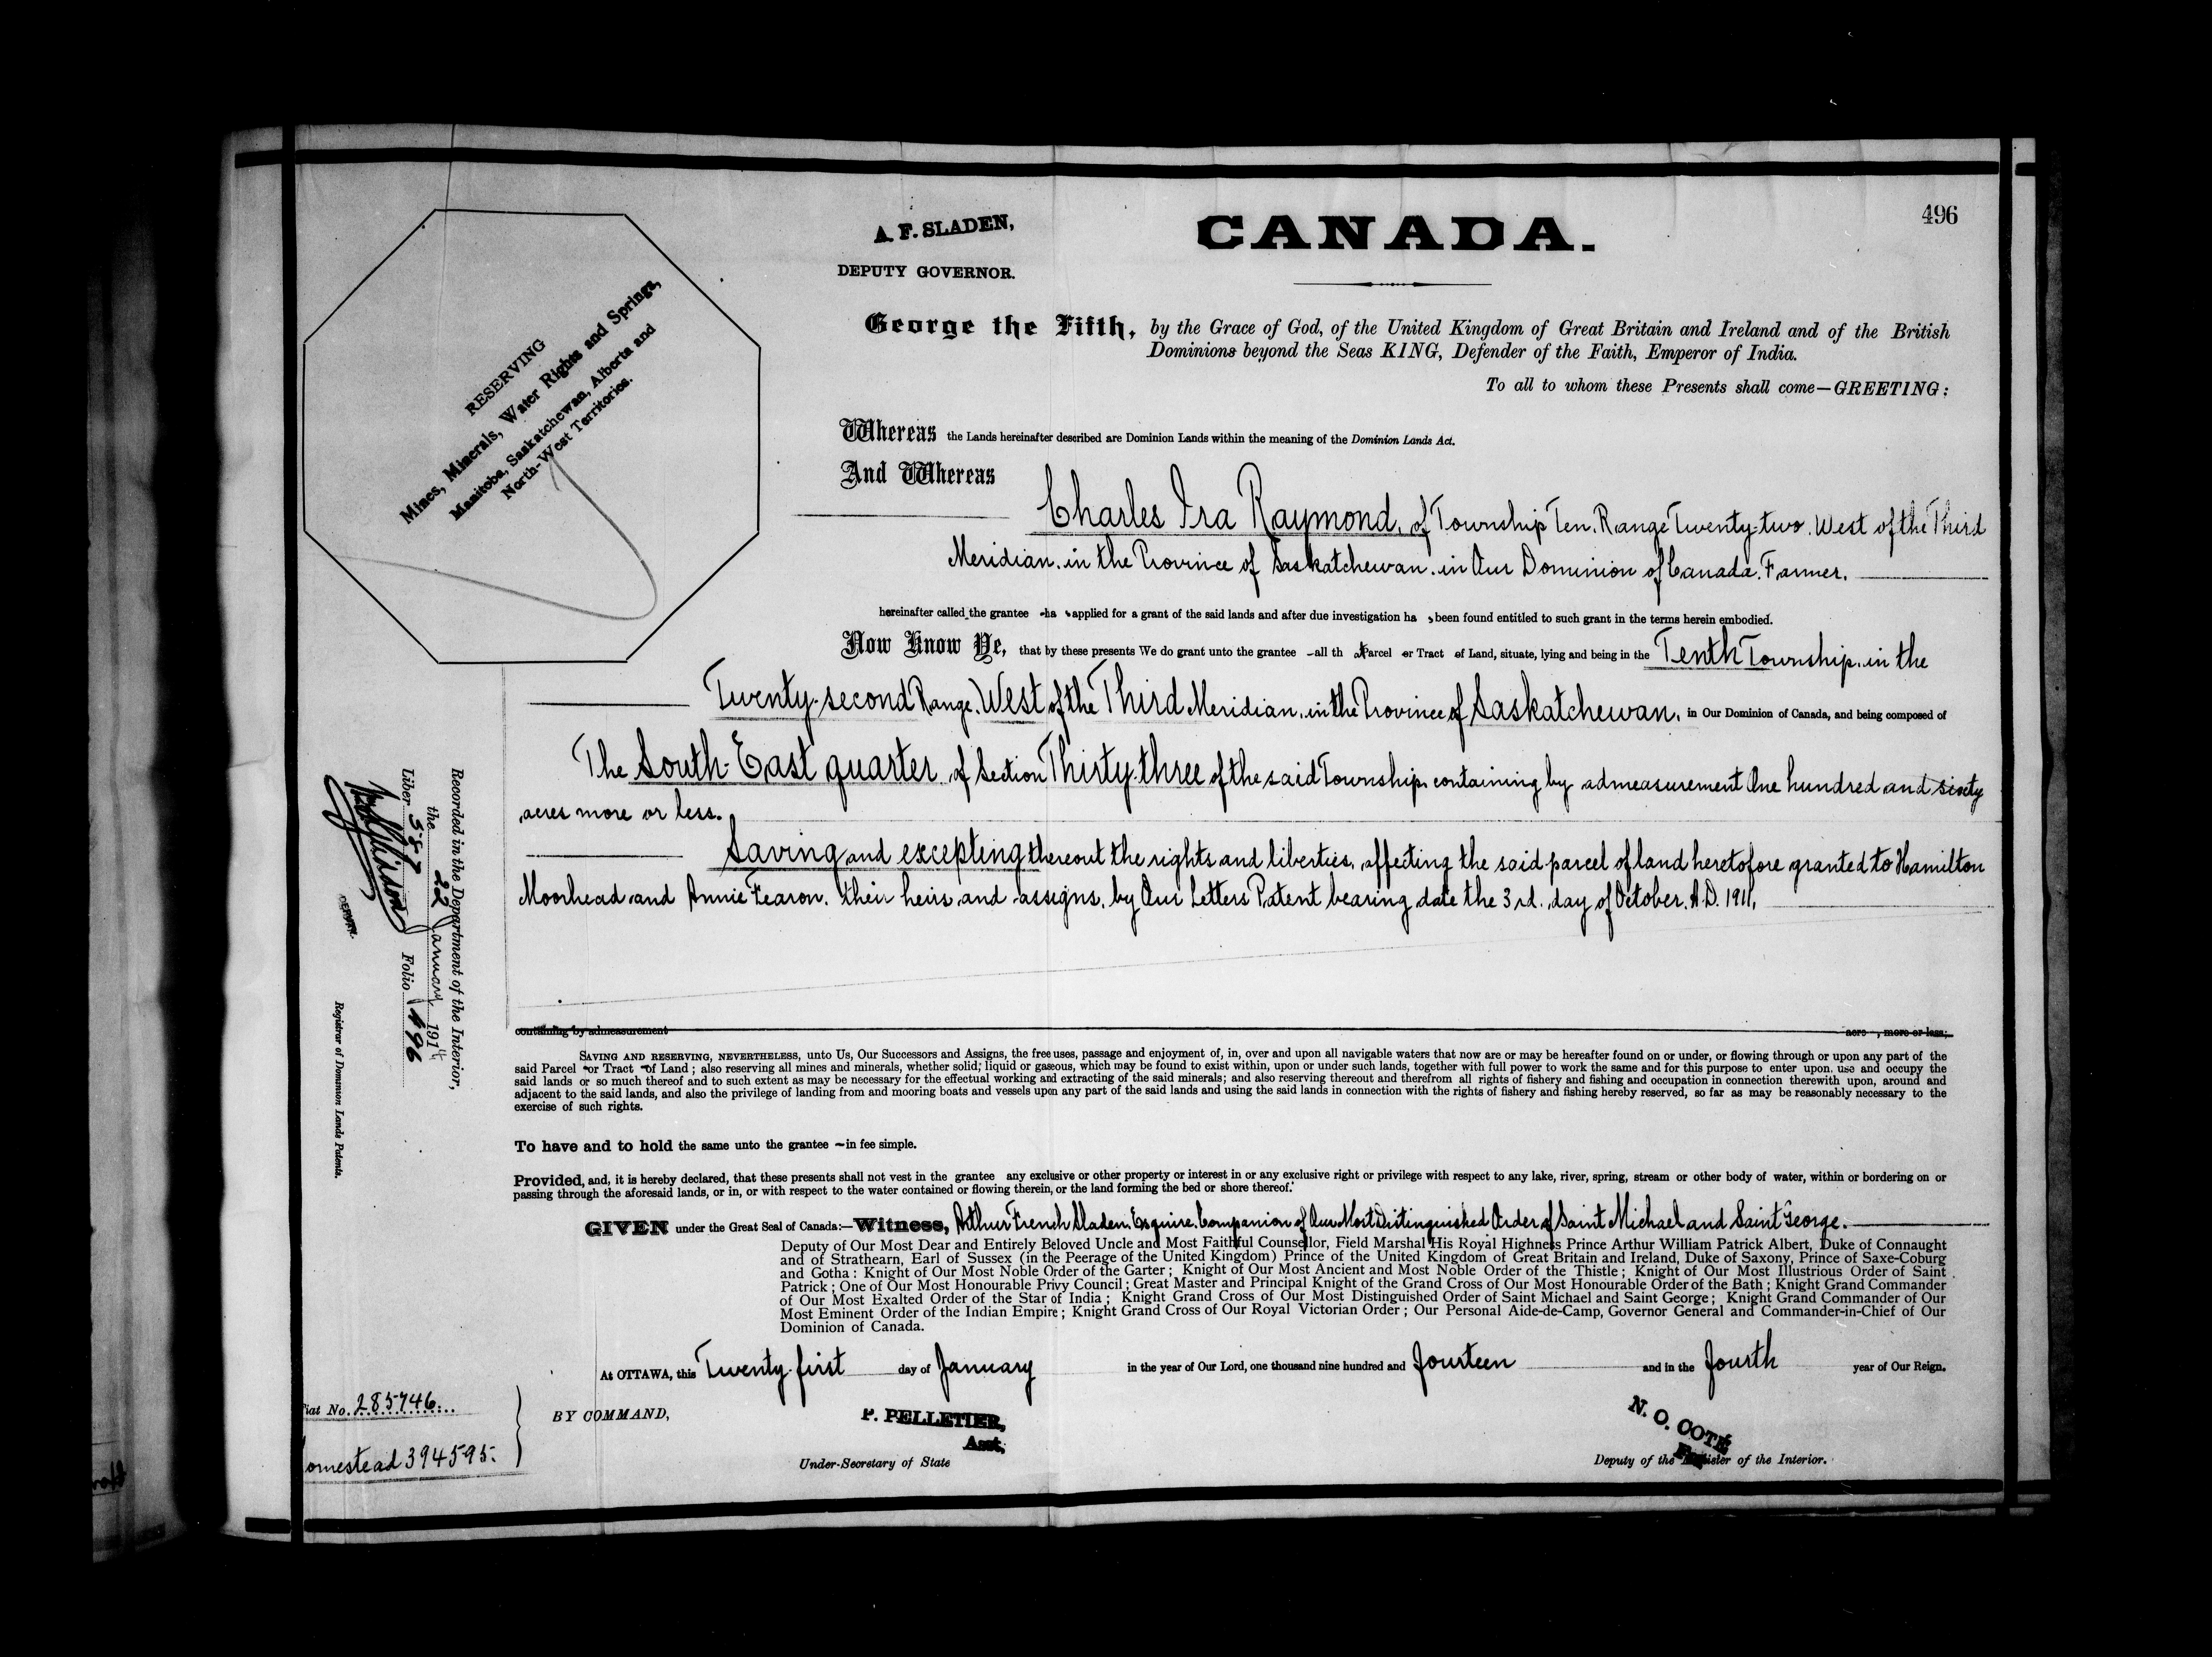 496
A. F. SLADEN,
DEPUTY GOVERNOR.
CANADA.
RESERVING
Mines, Minerals, Water Rights and Springs,
Manitoba, Saskatchewan, Alberta and
North-West Territories.
George the Fifth, by the Grace of God, of the United Kingdom of Great Britain and Ireland and of the British
Dominions beyond the Seas KING, Defender of the Faith, Emperor of India.
To all to whom these Presents shall come—GREETING:
Whereas the Lands hereinafter described are Dominion Lands within the meaning of the Dominion Lands Act.
And Whereas
Charles Ira Raymond, of Township Ten, Range Twenty-two, West of the Third
Meridian, in the Province of Saskatchewan, in Our Dominion of Canada, Farmer,
hereinafter called the grantee ha s applied for a grant of the said lands and after due investigation ha s been found entitled to such grant in the terms herein embodied.
Now Know Ye, that by these presents We do grant unto the grantee all th at Parcel or Tract of Land, situate, lying and being in the Tenth Township, in the
Twenty-second Range, West of the Third Meridian, in the Province of Saskatchewan, in Our Dominion of Canada, and being composed of
The South-East quarter of Section Thirty-three of the said Township, containing by admeasurement One hundred and sixty
acres more or less.
Saving and excepting thereout the rights and liberties, affecting the said parcel of land heretofore granted to Hamilton
Moorhead and Annie Fearon, their heirs and assigns, by Our Letters Patent bearing date the 3rd. day of October, A.D. 1911,
containing by admeasurement acre , more or less;
SAVING AND RESERVING, NEVERTHELESS, unto Us, Our Successors and Assigns, the free uses, passage and enjoyment of, in, over and upon all navigable waters that now are or may be hereafter found on or under, or flowing through or upon any part of the
said Parcel or Tract of Land; also reserving all mines and minerals, whether solid, liquid or gaseous, which may be found to exist within, upon or under such lands, together with full power to work the same and for this purpose to enter upon, use and occupy the
said lands or so much thereof and to such extent as may be necessary for the effectual working and extracting of the said minerals; and also reserving thereout and therefrom all rights of fishery and fishing and occupation in connection therewith upon, around and
adjacent to the said lands, and also the privilege of landing from and mooring boats and vessels upon any part of the said lands and using the said lands in connection with the rights of fishery and fishing hereby reserved, so far as may be reasonably necessary to the
exercise of such rights.
To have and to hold the same unto the grantee in fee simple.
Provided, and, it is hereby declared, that these presents shall not vest in the grantee any exclusive or other property or interest in or any exclusive right or privilege with respect to any lake, river, spring, stream or other body of water, within or bordering on or
passing through the aforesaid lands, or in, or with respect to the water contained or flowing therein, or the land forming the bed or shore thereof.
GIVEN under the Great Seal of Canada:—Witness, Arthur French Sladen, Esquire, Companion of Our Most Distinguished Order of Saint Michael and Saint George.
Deputy of Our Most Dear and Entirely Beloved Uncle and Most Faithful Counsellor, Field Marshal His Royal Highness Prince Arthur William Patrick Albert, Duke of Connaught
and of Strathearn, Earl of Sussex (in the Peerage of the United Kingdom) Prince of the United Kingdom of Great Britain and Ireland, Duke of Saxony, Prince of Saxe-Coburg
and Gotha: Knight of Our Most Noble Order of the Garter; Knight of Our Most Ancient and Most Noble Order of the Thistle; Knight of Our Most Illustrious Order of Saint
Patrick; One of Our Most Honourable Privy Council; Great Master and Principal Knight of the Grand Cross of Our Most Honourable Order of the Bath; Knight Grand Commander
of Our Most Exalted Order of the Star of India; Knight Grand Cross of Our Most Distinguished Order of Saint Michael and Saint George; Knight Grand Commander of Our
Most Eminent Order of the Indian Empire; Knight Grand Cross of Our Royal Victorian Order; Our Personal Aide-de-Camp, Governor General and Commander-in-Chief of Our
Dominion of Canada.
At OTTAWA, this Twenty-first day of January in the year of Our Lord, one thousand nine hundred and fourteen and in the fourth year of Our Reign.
BY COMMAND,
P. PELLETIER,
Asst,
Under-Secretary of State
N. O. COTÉ
Deputy of the Minister of the Interior.
Recorded in the Department of the Interior,
the 22 January 1914
Liber 587 Folio 496
Registrar of Dominion Lands Patents.
iat No. 285746
omestead 394595.